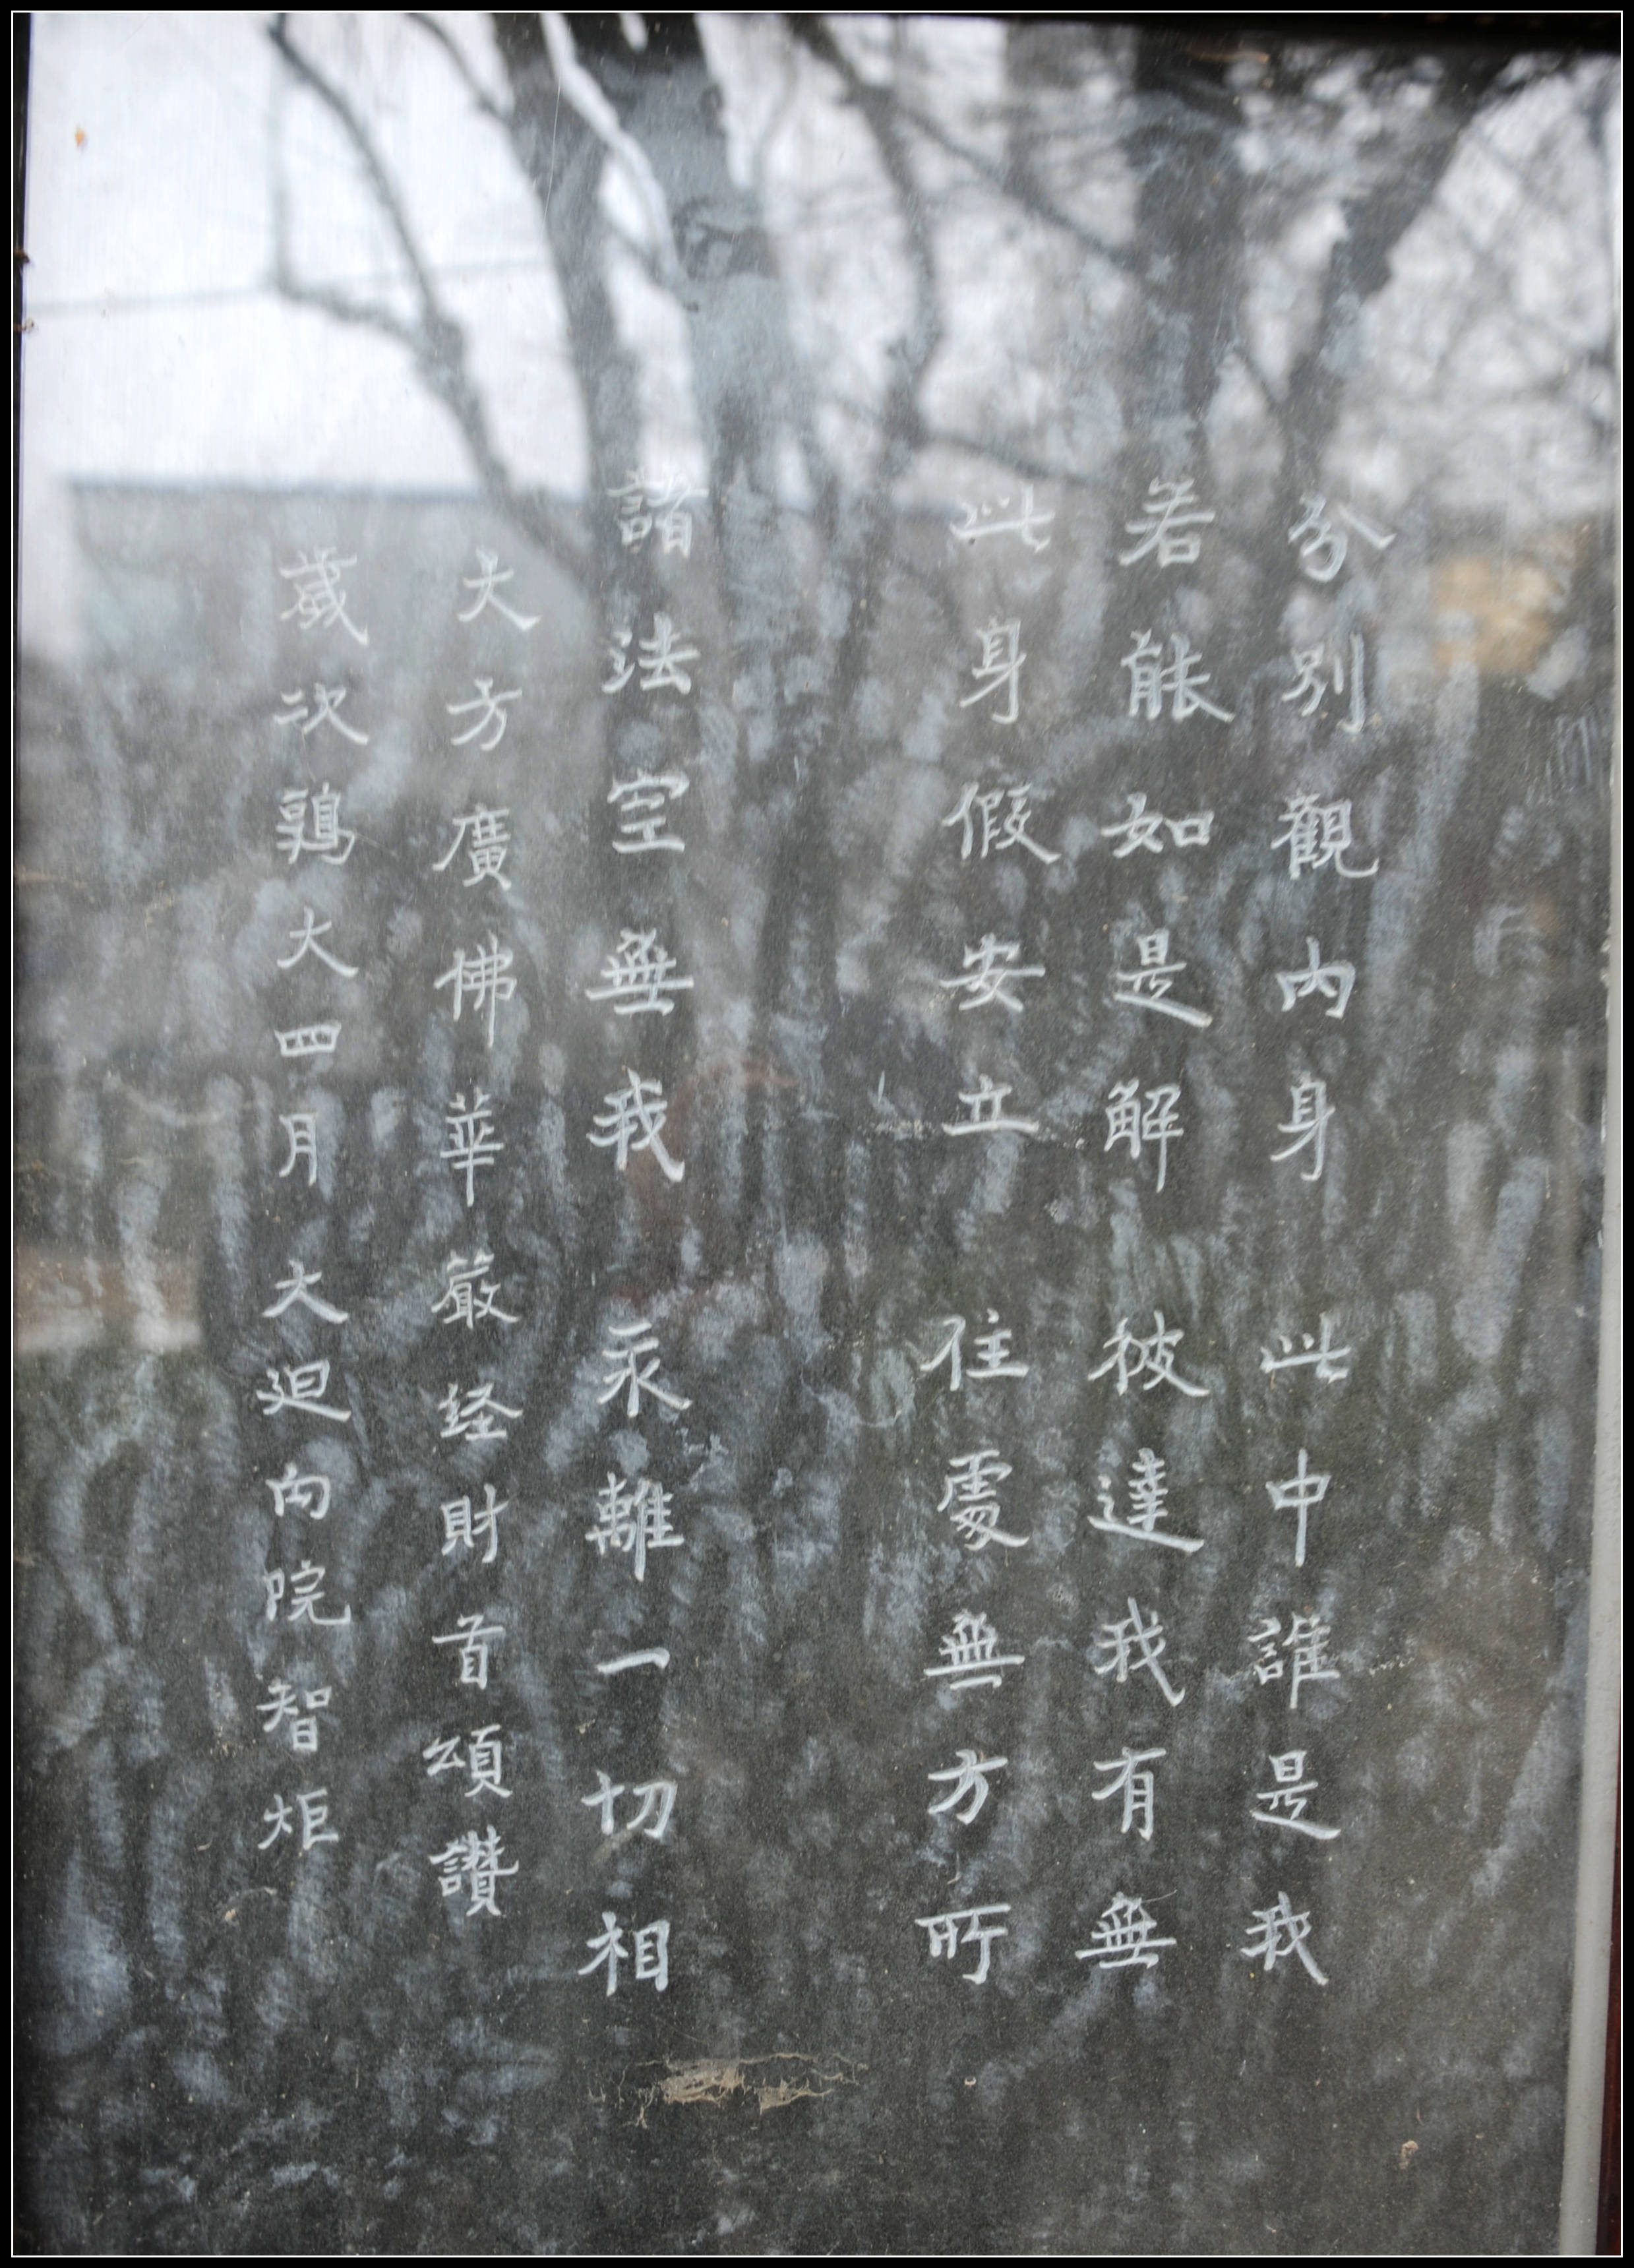 分別觀內身 此中誰是我
若能如是解 彼達我有無
此身假安立 住處無方所
諸法空無我 永離一切相
大方廣佛華嚴経財首頌讚
歲次鶉大四月 大迴向院智炬